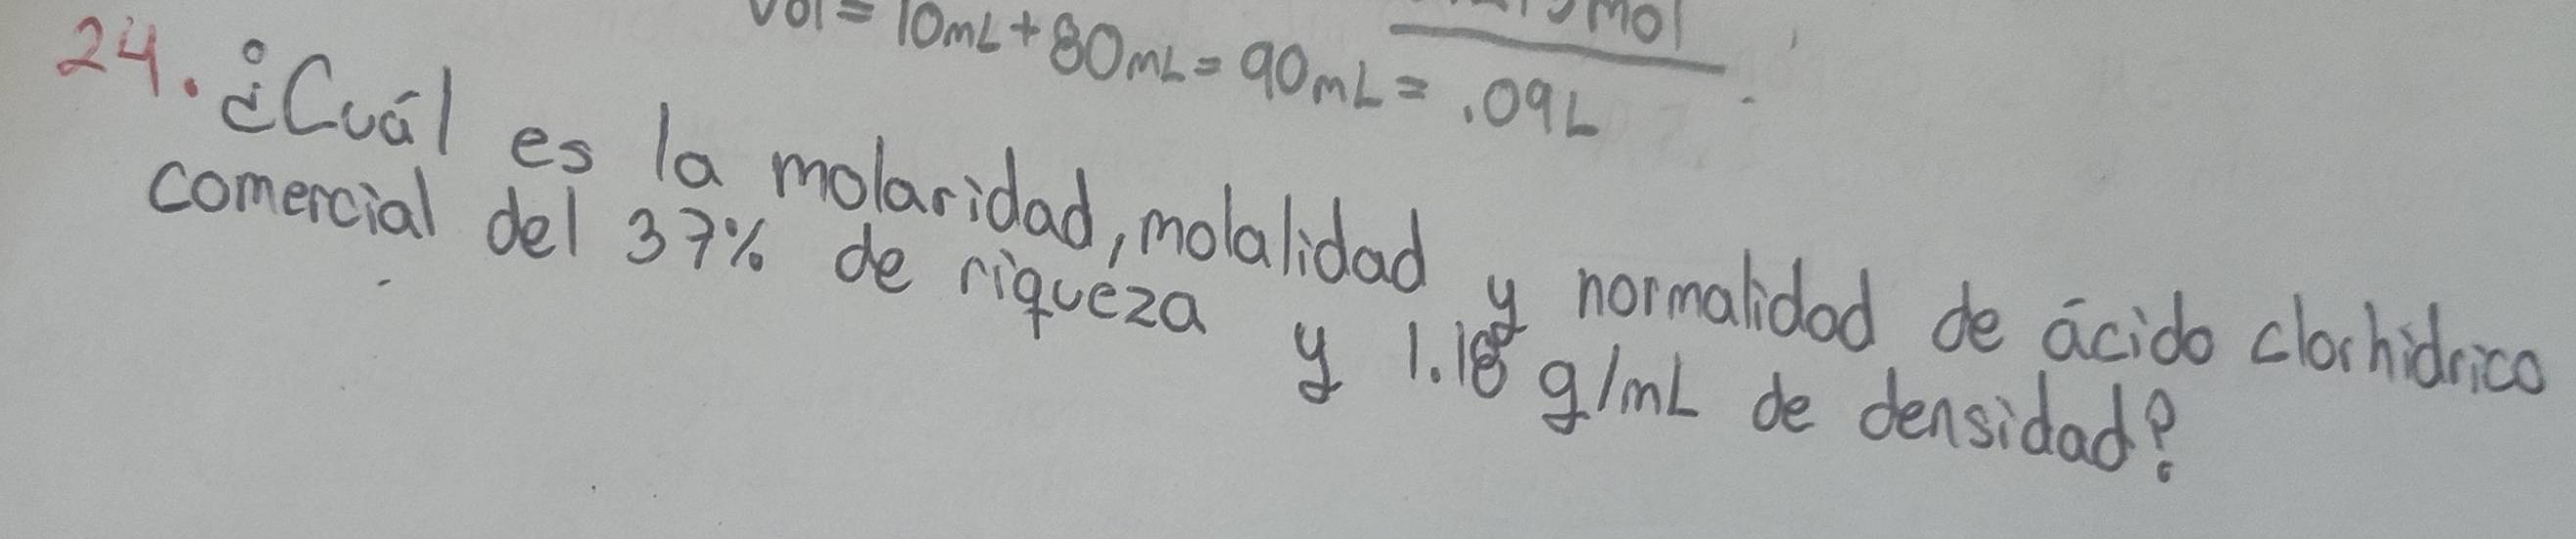 Vol = 10mL + 80mL = 90mL = .09L
mol
24. ¿Cuál es la molaridad, molalidad y normalidad de ácido clorhidrico
comercial del 37% de riqueza y 1.18 g/mL de densidad?